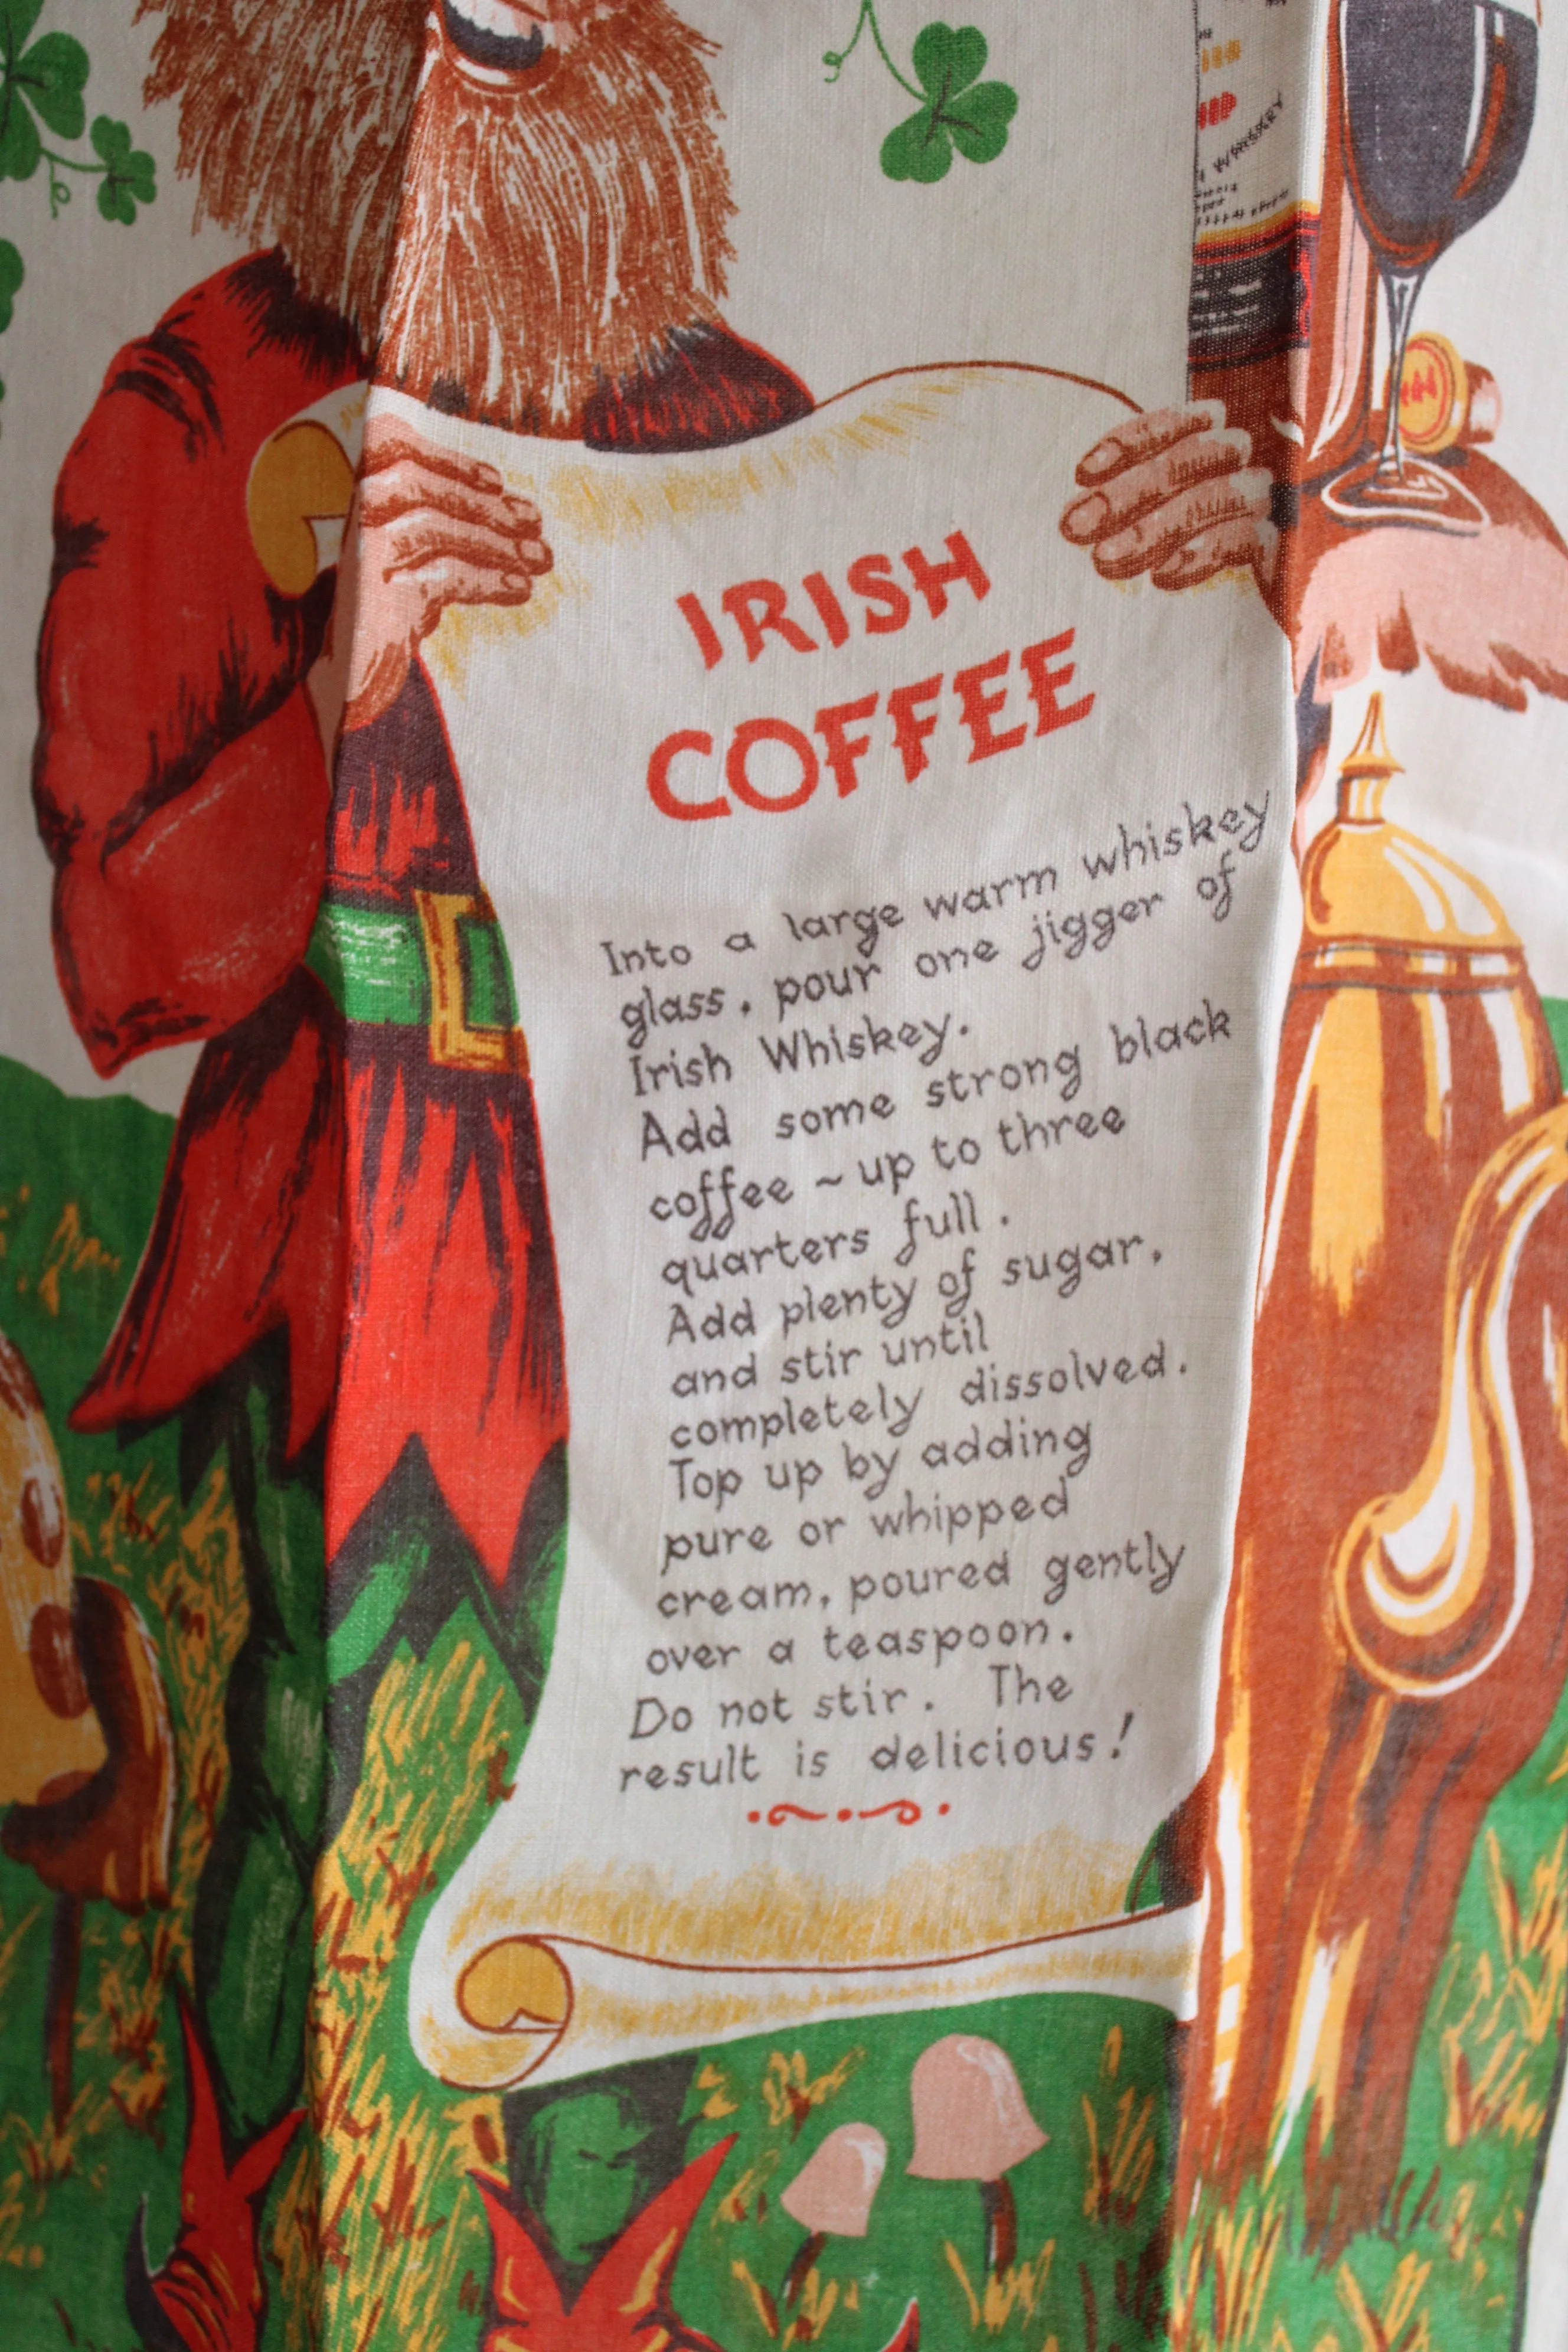 WHISKEY
IRISH
COFFEE
Into a large warm whiskey
glass, pour one jigger of
Irish Whiskey.
Add some strong black
coffee ~ up to three
quarters full.
Add plenty of sugar,
and stir until
completely dissolved.
Top up by adding
pure or whipped
cream, poured gently
over a teaspoon.
Do not stir. The
result is delicious!